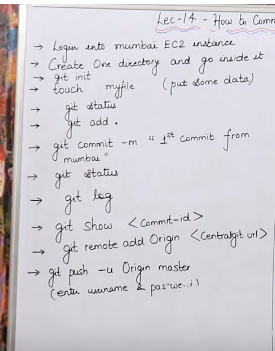 Lec-14 - How to Comm
→ Login into mumbai EC2 instance
→ Create One directory and go inside it
→ git init
→ touch myfile (put some data)
→ git status
→ git add .
→ git commit -m " 1st commit from
mumbai"
→ git status
→ git log
→ git show <commit-id>
→ git remote add Origin <Centralgit url>
→ git push -u Origin master
(enter username &